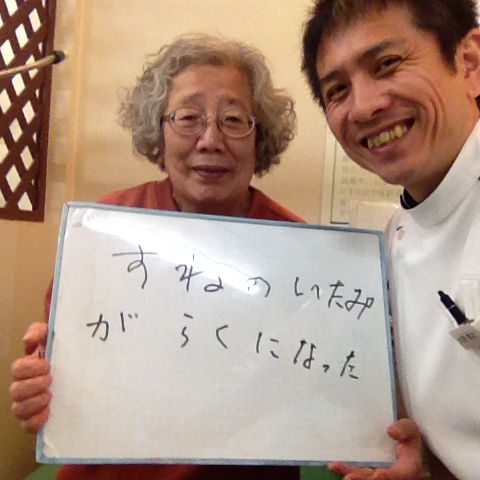 すねのいたみ
がらくになった